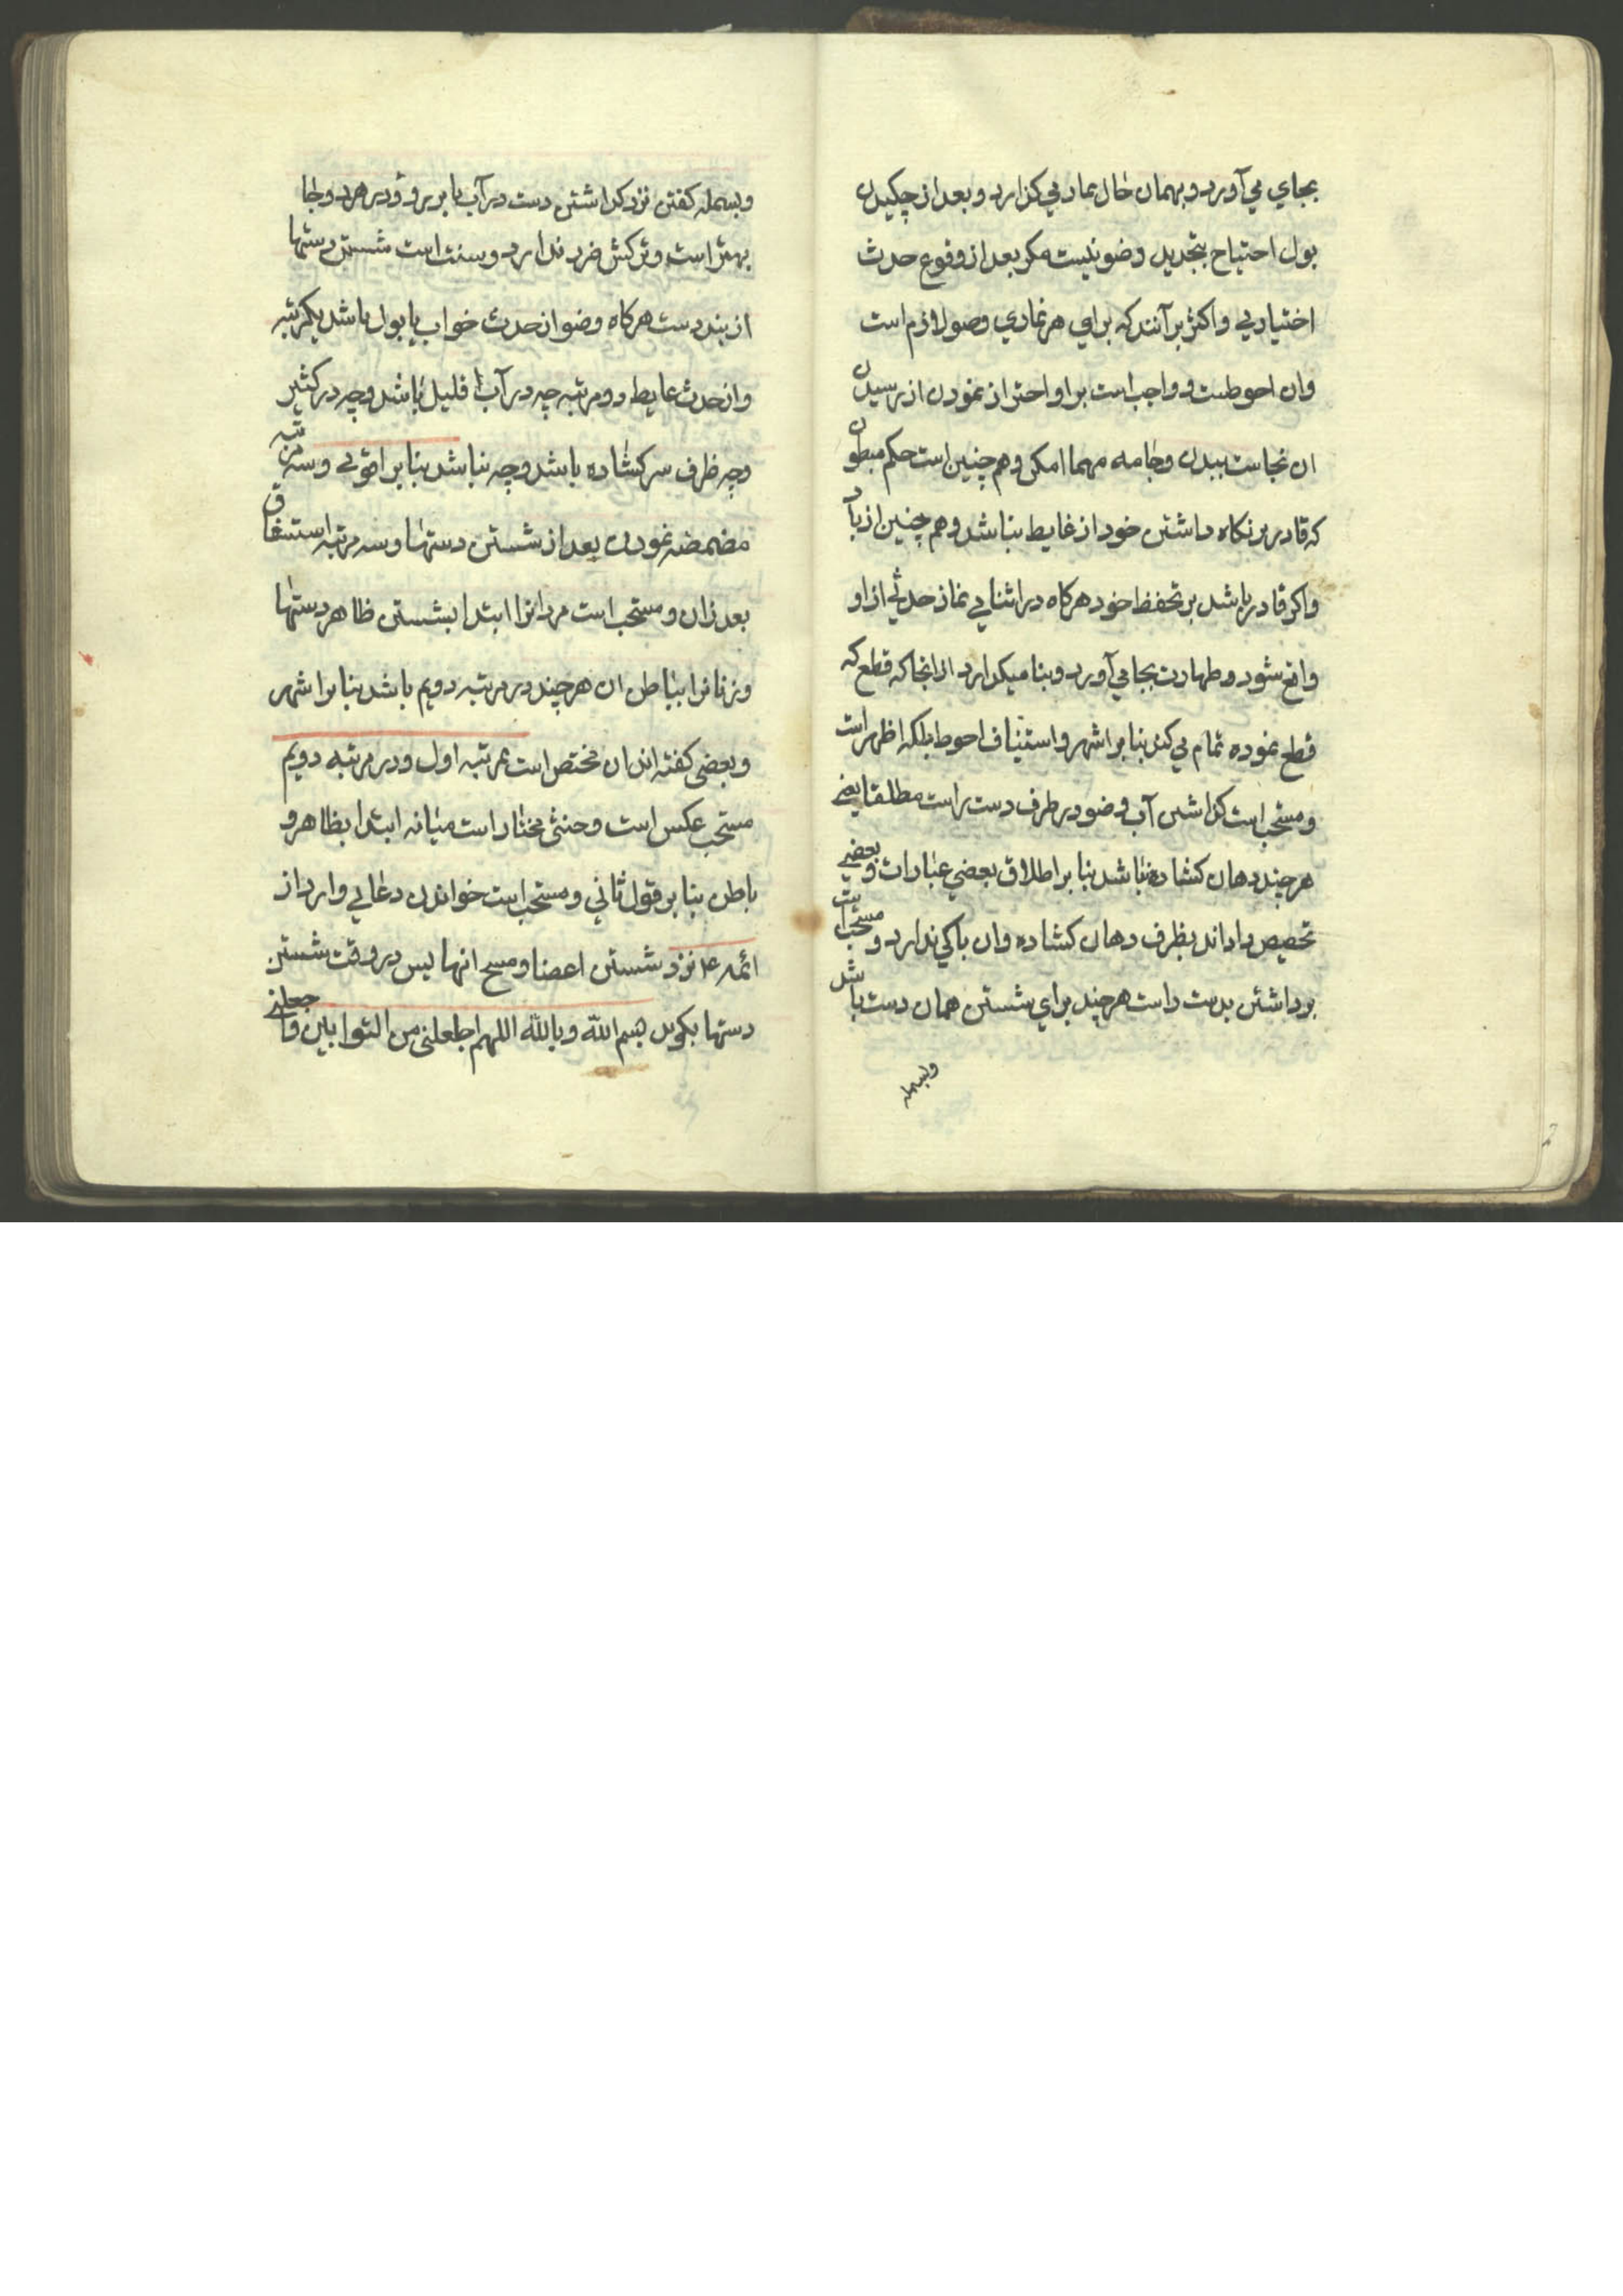 بجاي مي‌آورد و بهمان حال نماز مي‌كزارد و بعد از چكيدن
بول احتياج بتجديد وضو نيست مكر بعد از وقوع حدث
اختياري و اكثر برآنند كه براي هر نمازي وضو لازم است
و ان احوطست و واجب است بر او احتراز نمودن از رسيدن
ان نجاست ببدن و جامه مهما امكن و هم چنين است حكم مبطون
كه قادر بر نكاه داشتن خود از غايط نباشد و هم چنين از باد
و اكر قادر باشد بر تحفظ خود هركاه در اثناي نماز حدثي از او
واقع شود و طهارت بجا مي‌آورد و بنا ميكذارد از انجا كه قطع كه
قطع نموده تمام مي‌كند بنا بر اشهر و استيناف احوط بلكه اظهر است
و مستحب است كذاشتن آب وضو در طرف دست راست مطلقا يعني
هرچند دهان كشاده نباشد بنا بر اطلاق بعضي عبارات و بعضي
تخصيص داداند بظرف دهان كشاده و ان باكي ندارد و مستحب است
برداشتن بدست راست هرچند براي شستن همان دست باشد
وبسمله
وبسمله كفتن نزد كذاشتن دست در آب يا بر رو و در هر دو جا
بهتر است و تركش ضرر ندارد و سنت است شستن دستها
از بند دست هركاه وضو از حدث خواب يا بول باشد يكمرتبه
و از حدث غايط دو مرتبه چه در آب قليل باشد و چه در كثير
و چه ظرف سركشاده باشد و چه نباشد بنا بر اقوي و سه مرتبه
مضمضه نمودن بعد از شستن دستها و سه مرتبه استنشاق
بعد از ان و مستحب است مردانرا ابتدا بشستن ظاهر دستها
و زنانرا بباطن ان هرچند در مرتبه دويم باشد بنا بر اشهر
و بعضي كفته اند ان مختص است بمرتبه اول و در مرتبه دويم
مستحب عكس است و خنثي مختار است ميانه ابتدا بظاهر و
باطن بنا بر قول ثاني و مستحب است خواندن دعايي وارد از
ائمه ع نزد شستن اعضا و مسح انها پس در وقت شستن
دستها بكويد بسم الله و بالله اللهم اجعلني من التوابين واجعلني